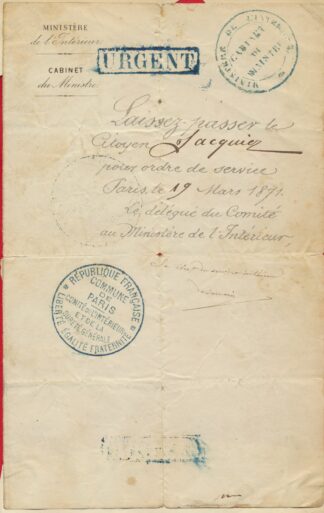 MINISTÈRE
de l'Intérieur
CABINET
du Ministre
URGENT
MINISTÈRE DE L'INTÉRIEUR
CABINET
DU
MINISTRE
Laissez-passer le
Citoyen Jacquier
pour ordre de service
Paris, le 19 Mars 1871.
Le délégué du Comité
au Ministère de l'Intérieur,
RÉPUBLIQUE FRANÇAISE
COMMUNE
DE
PARIS
COMITÉ DE L'INTÉRIEUR
ET DE LA
SÛRETÉ GÉNÉRALE
LIBERTÉ ÉGALITÉ FRATERNITÉ